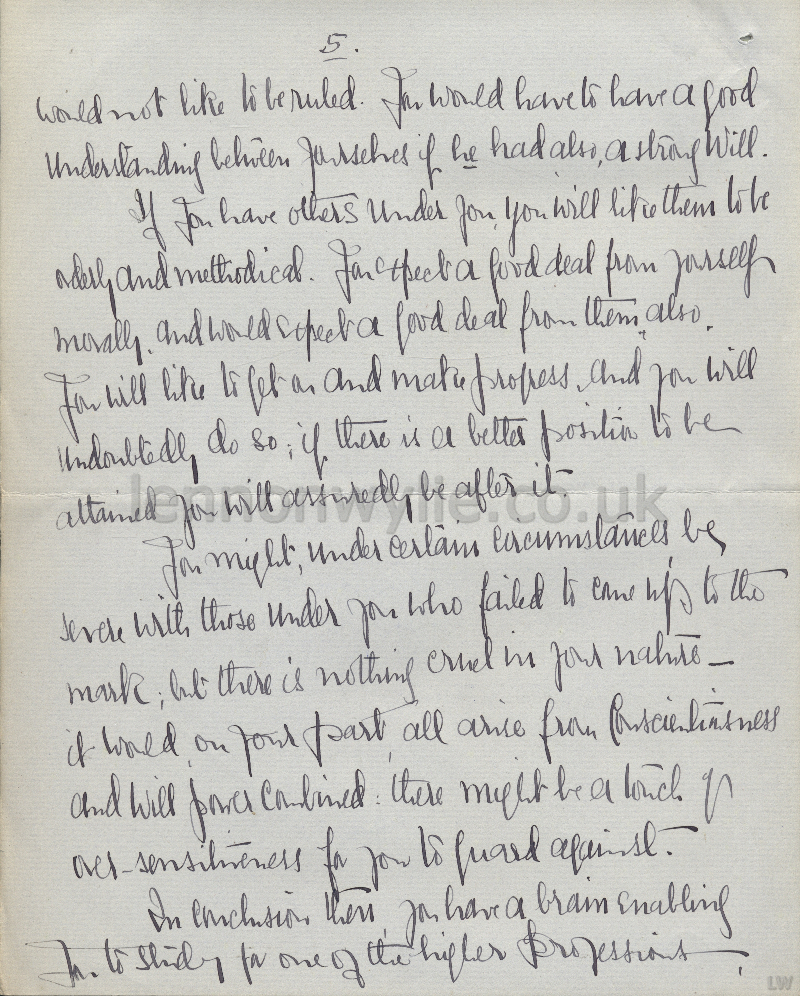 5.
would not like to be ruled. You would have to have a good
understanding between yourselves if he had also, a strong Will.
If you have others under you, you will like them to be
orderly and methodical. You expect a good deal from yourself
morally, and would expect a good deal from them also.
You will like to get on and make progress, and you will
undoubtedly do so; if there is a better position to be
attained you will assuredly be after it.
You might, under certain circumstances, be
severe with those under you who failed to come up to the
mark; but there is nothing cruel in your nature —
it would, on your part, all arise from Conscientiousness
and Will power combined: there might be a touch of
over-sensitiveness for you to guard against.
In conclusion then, you have a brain enabling
you to study for one of the higher Professions —,
lennonwylie.co.uk
LW